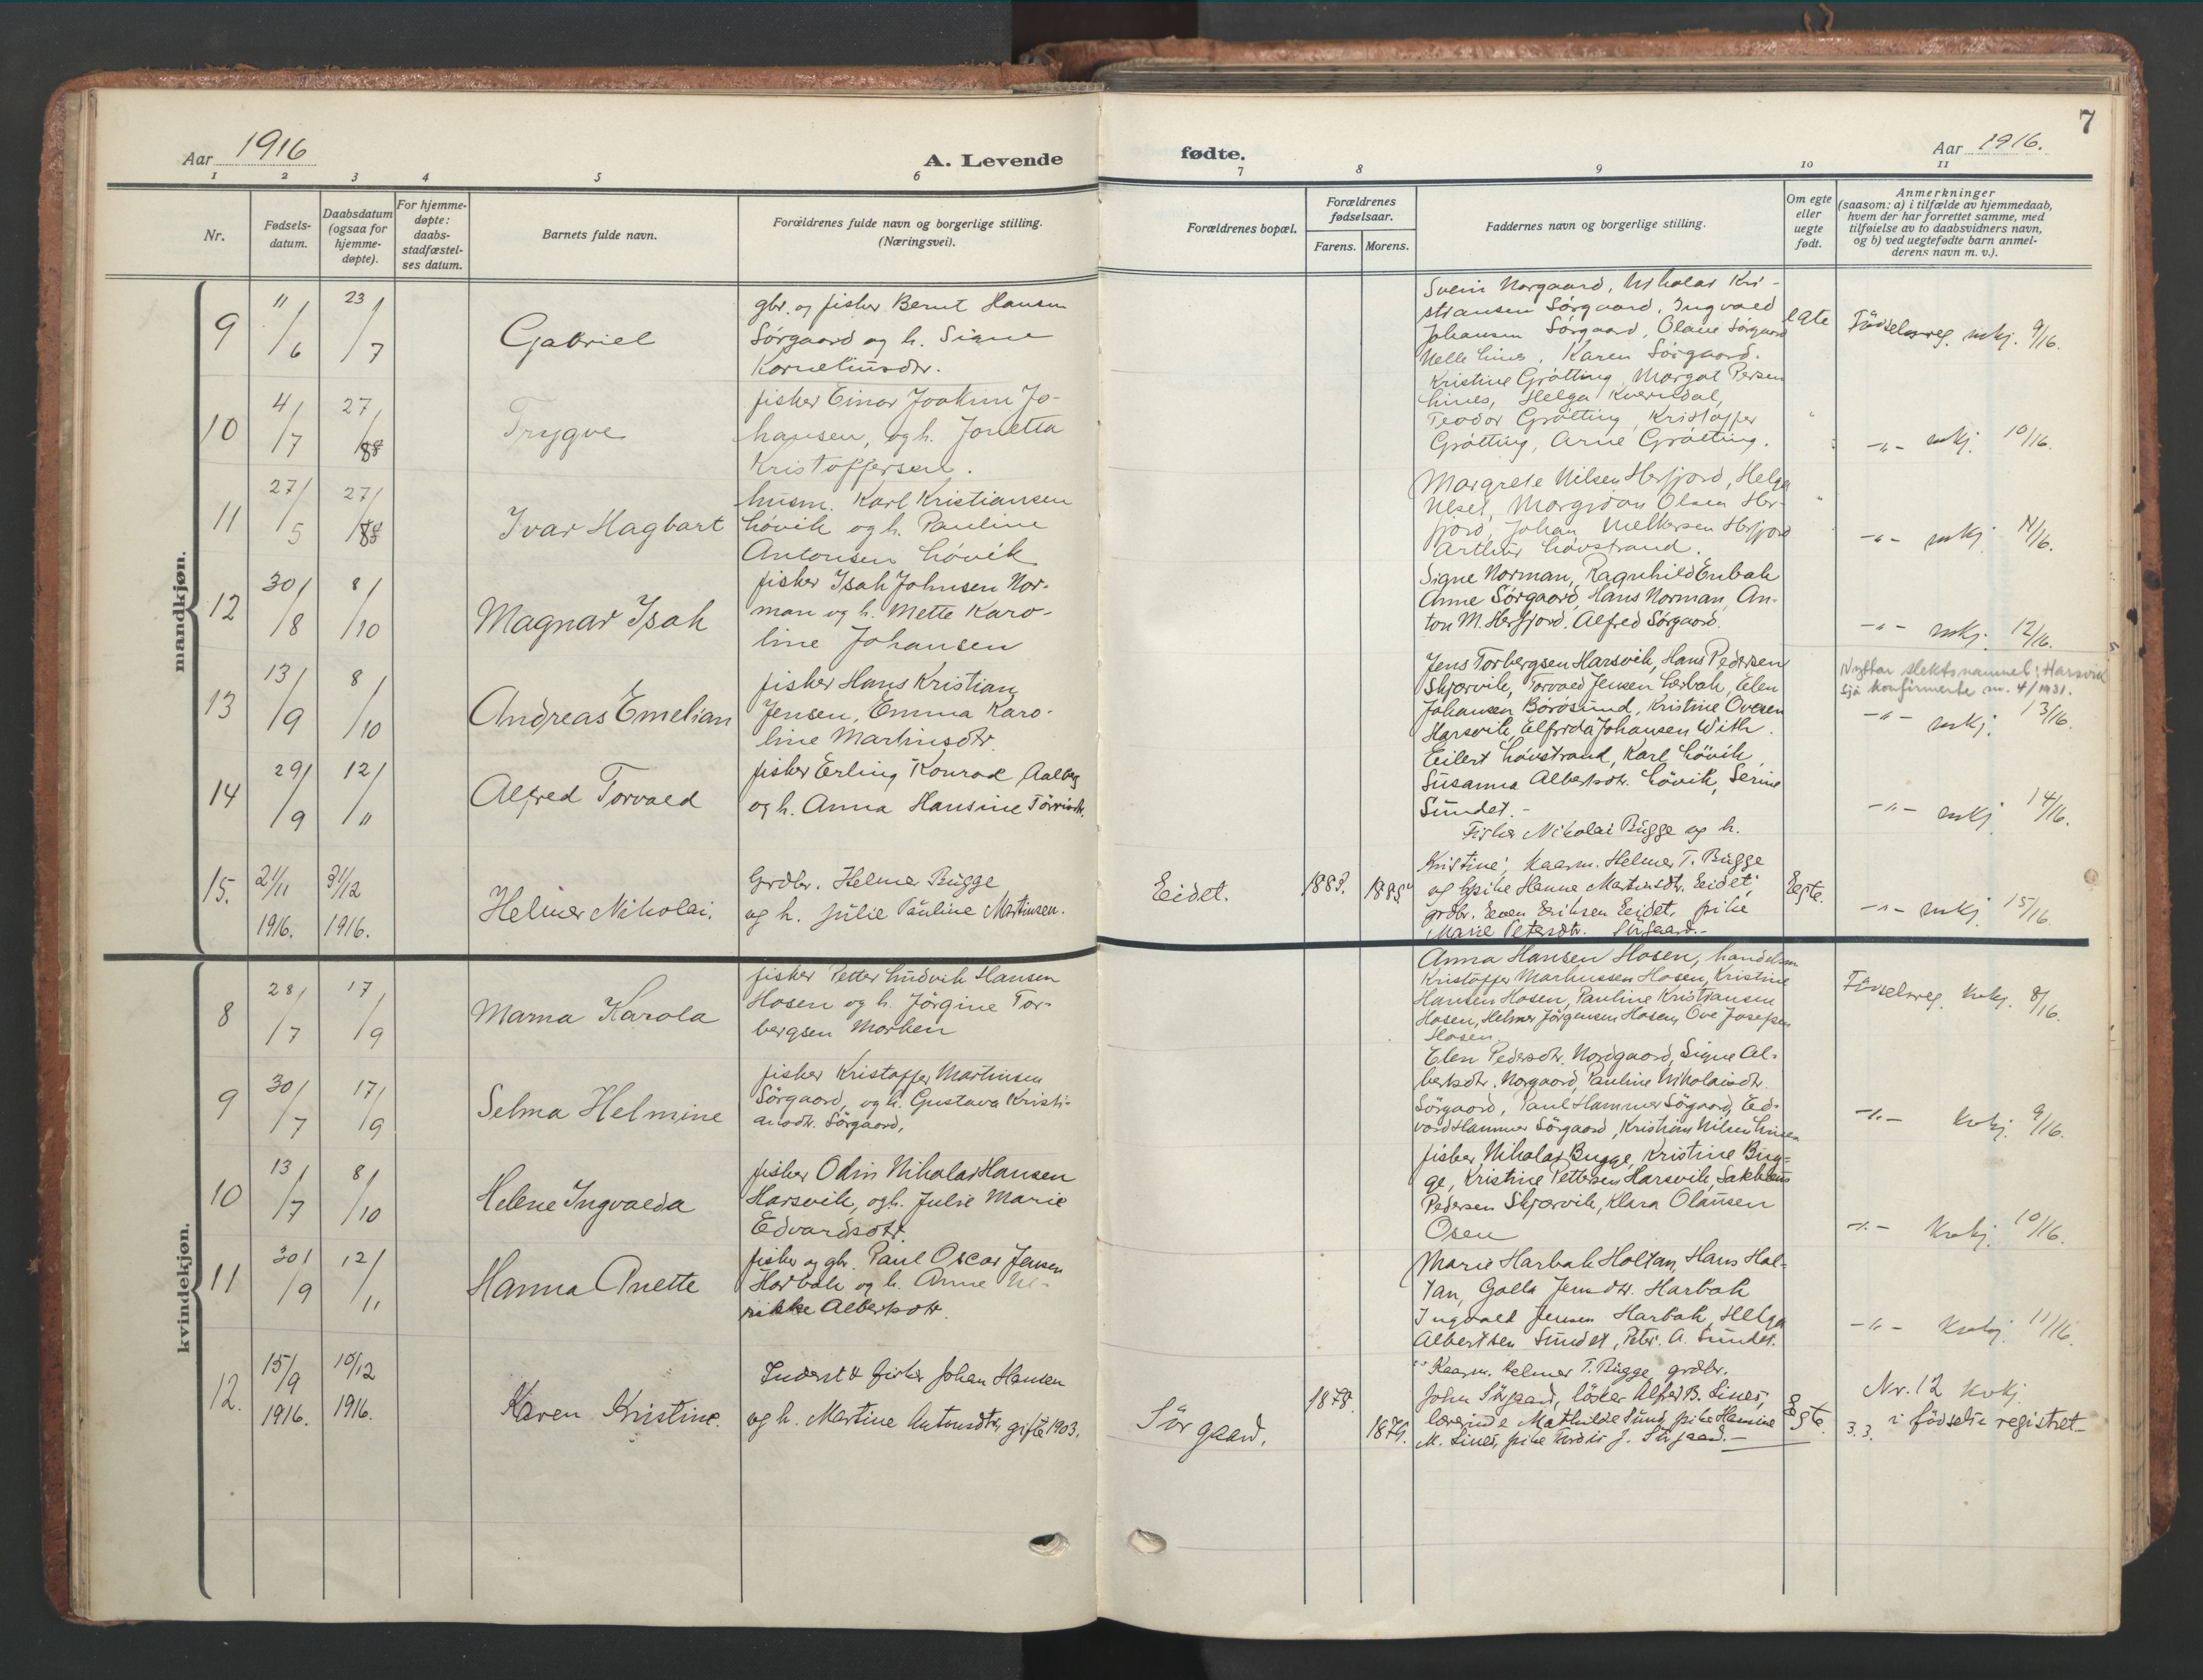 7
Aar 1916
A. Levende
fødte.
Aar 1916.
1 2 3 4 5 6 7 8 9 10 11
Nr.
Fødsels-
datum.
Daabsdatum
(ogsaa for
hjemme-
døpte).
For hjemme-
døpte:
daabs-
stadfæstel-
ses datum.
Barnets fulde navn.
Forældrenes fulde navn og borgerlige stilling.
(Næringsvei).
Forældrenes bopæl.
Forældrenes
fødselsaar.
Farens. Morens.
Faddernes navn og borgerlige stilling.
Om egte
eller
uegte
født.
Anmerkninger
(saasom: a) i tilfælde av hjemmedaab,
hvem der har forrettet samme, med
tilføielse av to daabsvidners navn,
og b) ved uegtefødte barn anmel-
derens navn m. v.).
mandkjøn.
9
11/6
23/7
Gabriel
gbr. og fisker Bernt Hansen
Sørgaard og h. Signe
Korneliusdtr.
Svein Norgaard, Nikolai Kri-
stiansen Sørgaard, Ingvald
Johansen Sørgaard, Olave Sørgaard
Nelle Lines, Karen Sørgaard.
egte
Födselsreg. mkj. 9/16.
10
4/7
27/8
Trygve
fisker Einar Joakim Jo-
hansen, og h. Jonetta
Kristoffersen.
Kristine Grötting, Margot Persen
Lines, Helga Kverndal,
Teodor Grötting, Kristoffer
Grötting, Arne Grötting.
"
-"- mkj. 10/16.
11
27/5
27/8
Ivar Hagbart
husm. Karl Kristiansen
Lövik og h. Pauline
Antonsen Lövik
Margrete Nilsen Herfjord, Helga
Neset, Margido Olsen Her-
fjord, Johan Melkersen Herfjord
Arthur Lövstrand.
"
-"- mkj. 11/16.
12
30/8
8/10
Magnar Isak
fisker Isak Johnsen Nor-
man og h. Mette Karo-
line Johansen
Signe Norman, Ragnhild Enbak
Anne Sørgaard, Hans Norman, An-
ton M. Herfjord, Alfred Sørgaard.
-"- mkj. 12/16.
13
13/9
8/10
Andreas Emelian
fisker Hans Kristian
Jensen, Emma Karo-
line Martinsdtr.
Jens Torbergsen Harsvik, Hans Pedersen
Skjærvik, Torvald Jensen Lerbak, Elen
Johansen Börösund, Kristine Ovesen
Harsvik, Elfrida Johansen With.
Nyttar slektsnamnet: Harsvik
sjå konfirmerte nr. 4/1931.
-"- mkj. 13/16.
14
29/9
12/11
Alfred Torvald
fisker Erling Konrad Aalberg
og h. Anna Hansine Törrisdtr.
Eilert Lövstrand, Karl Lövik,
Susanna Albertsdtr. Lövik, Serine
Sundet.-
-"- mkj 14/16.
15.
21/11
1916.
31/12
1916.
Helmer Nikolai.
Grdbr. Helmer Bugge
og h. Julie Pauline Martinsen.
Eidet.
1883.
1885
Fisker Nikolai Bugge og h.
Kristine; kaarm. Helmer T. Bugge
og pike Hanne Martinsdtr. Eidet;
grdbr. Even Eriksen Eidet, pike
Marie Petersdtr. Sörgaard.-
Egte.
-"- mkj 15/16.
kvindekjøn.
8
28/7
17/9
Marna Karola
fisker Petter Ludvik Hansen
Hosen og h. Jörgine Tor-
bergsen Morken
Anna Hansen Hosen, handelsm
Kristoffer Markussen Hosen, Kristine
Hansen Hosen, Pauline Kristiansen
Hosen, Helmer Jörgensen Hosen, Ove Josefsen
Hosen.
Födselsreg. kvkj. 8/16.
9
30/7
17/9
Selma Helmine
fisker Kristoffer Martinsen
Sörgaard, og h. Gustava Kristi-
ansdtr. Sörgaard,
Elen Pedersdtr. Nordgaard, Signe Al-
bertsdtr. Norgaard, Pauline Nikolaisdtr.
Sörgaard, Paul Hammer Sögaard, Ed-
vard Hammer Sörgaard, Kristian Nilsen Lines
-"- kvkj. 9/16.
10
13/7
8/10
Helene Ingvalda
fisker Odin Nikolai Hansen
Harsvik, og h. Julie Marie
Edvardsdtr.
fisker Nikolai Bugge, Kristine Bug-
ge, Kristine Pettersen Harsvik, Sakkeus
Pedersen Skjærvik, Klara Olausen
Osen
-"- kvkj. 10/16.
11
30/9
12/11
Hanna Anette
fisker og gbr. Paul Oscar Jensen
Harbak og h. Anne Ul-
rikke Albertsdtr.
Marie Harbak Holtan, Hans Hol-
tan, Golla Jensdtr. Harbak
Ingvald Jensen Harbak, Helga
Albertsen Sundet, Peter A. Sundet.
-"- kvkj. 11/16.
12.
15/9
1916.
10/12
1916.
Karen Kristine.
Inderst & fisker Johan Hansen
og h. Martine Antonsdtr, gifte 1903.
Sörgaard.
1878.
1879.
Kaarm. Helmer T. Bugge, grdbr.
John Sörgaard, löskar Alfred B. Lines,
lærerinde Mathilde Sund, pike Hansine
M. Lines, pike Tordis J. Sörgaard.-
Egte.
Nr. 12 kvkj.
i födselsregistret
3.3.